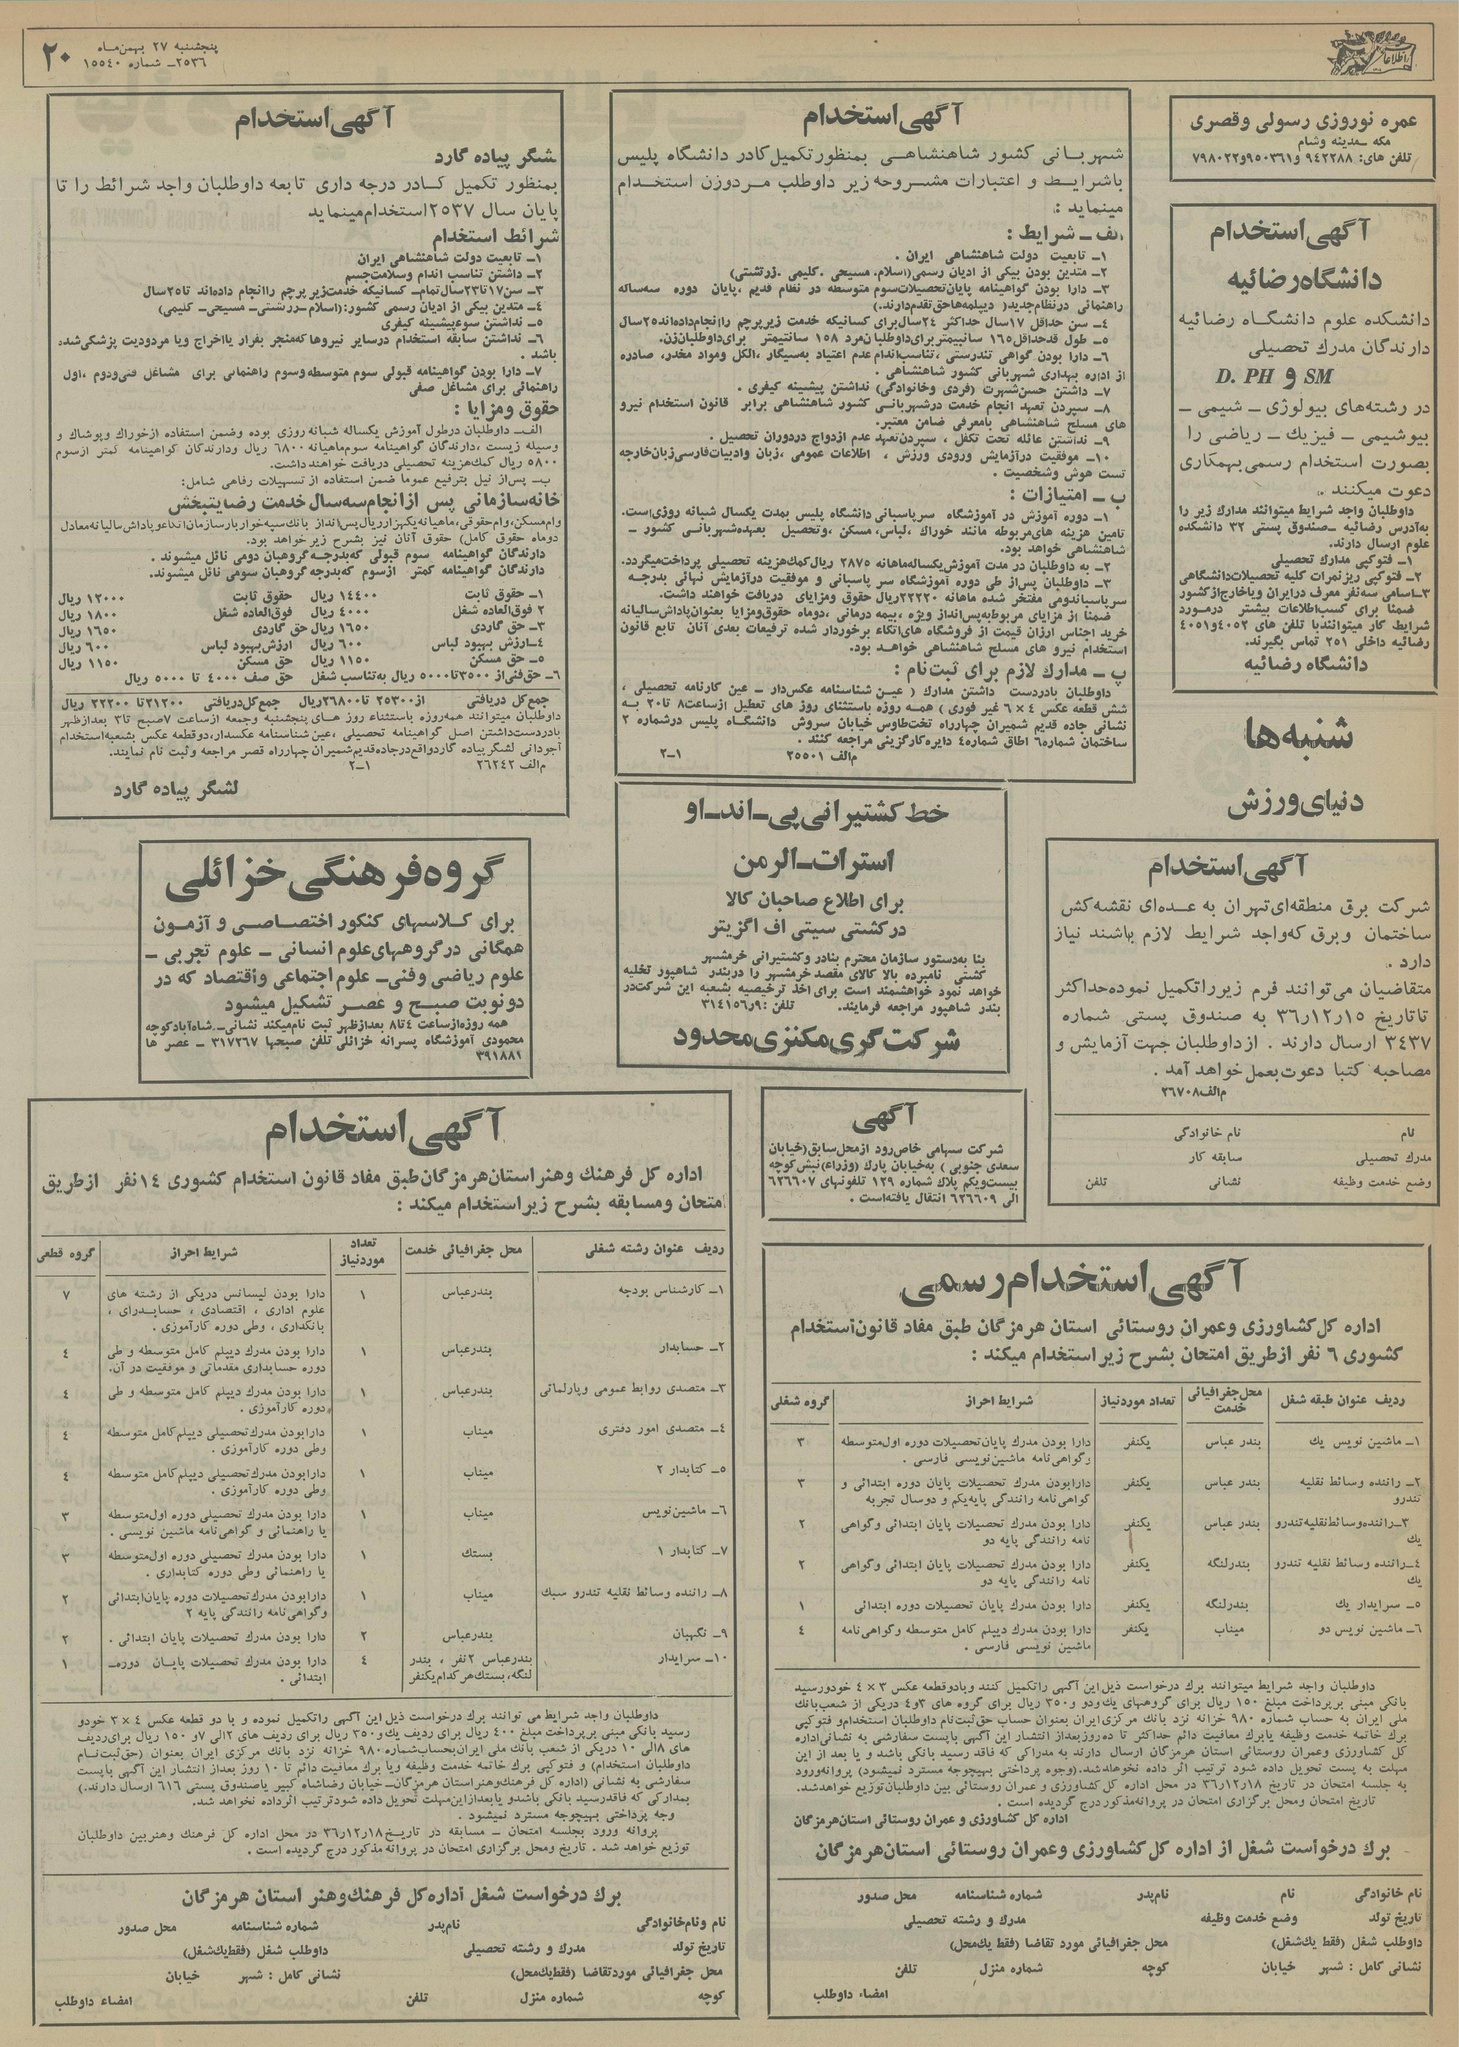 پنجشنبه ۲۷ بهمن‌ماه
۲۵۳۶ـ شماره ۱۵۵۴۰
۲۰
اطلاعات
عمره نوروزی رسولی وقصری
مکه ـ مدینه وشام
تلفن های: ۹۴۲۲۸۸ و ۹۵۰۳۶۱ و ۷۹۸۰۲۲
آگهی استخدام
دانشگاه رضائیه
دانشکده علوم دانشگاه رضائیه
دارندگان مدرك تحصیلی
SM و D. PH
در رشته‌های بیولوژی ـ شیمی ـ
بیوشیمی ـ فیزیك ـ ریاضی را
بصورت استخدام رسمی بهمکاری
دعوت میکنند .
داوطلبان واجد شرایط میتوانند مدارك زیر را
به‌آدرس رضائیه ـ صندوق پستی ۳۲ دانشکده
علوم ارسال دارند.
۱ـ فتوکپی مدارك تحصیلی
۲ـ فتوکپی ریزنمرات کلیه تحصیلات‌دانشگاهی
۳ـ اسامی سه‌نفر معرف درایران ویاخارج‌ازکشور
ضمنا برای کسب‌اطلاعات بیشتر درمورد
شرایط کار میتوانندبا تلفن های ۴۰۵۲ و ۴۰۵۱
رضائیه داخلی ۲۵۱ تماس بگیرند.
دانشگاه رضائیه
شنبه‌ها
دنیای ورزش
آگهی استخدام
شهربانی کشور شاهنشاهی بمنظور تکمیل کادر دانشگاه پلیس
باشرایط و اعتبارات مشروحه زیر داوطلب مرد وزن استخدام
مینماید :
الف ـ شرایط :
۱ـ تابعیت دولت شاهنشاهی ایران .
۲ـ متدین بودن بیکی از ادیان رسمی (اسلام، مسیحی ،کلیمی ،زرتشتی)
۳ـ دارا بودن گواهینامه پایان‌تحصیلات‌سوم متوسطه در نظام قدیم ،پایان دوره سه‌ساله
راهنمائی درنظام‌جدید (دیپلمه‌ها حق‌تقدم‌دارند.)
۴ـ سن حداقل ۱۷سال حداکثر ۲۴سال‌برای کسانیکه خدمت زیرپرچم راانجام‌داده‌اند۲۵سال
۵ـ طول قدحداقل۱۶۵ سانتیمتربرای‌داوطلبان‌مرد ۱۵۸ سانتیمتر برای‌داوطلبان‌زن.
۶ـ دارا بودن گواهی تندرستی ،تناسب‌اندام عدم اعتیاد به‌سیگار ،الکل ومواد مخدر، صادره
از اداره بهداری شهربانی کشور شاهنشاهی .
۷ـ داشتن حسن‌شهرت (فردی وخانوادگی) نداشتن پیشینه کیفری .
۸ـ سپردن تعهد انجام خدمت درشهربانی کشور شاهنشاهی برابر قانون استخدام نیرو
های مسلح شاهنشاهی بامعرفی ضامن معتبر.
۹ـ نداشتن عائله تحت تکفل ، سپردن‌تعهد عدم ازدواج دردوران تحصیل .
۱۰ـ موفقیت درآزمایش ورودی ورزش ، اطلاعات عمومی ،زبان وادبیات‌فارسی‌زبان‌خارجه
تست هوش وشخصیت .
ب ـ امتیازات :
۱ـ دوره آموزش در آموزشگاه سرپاسبانی دانشگاه پلیس بمدت یکسال شبانه روزی‌است.
تامین هزینه های‌مربوطه مانند خوراك ،لباس، مسکن ،وتحصیل بعهده‌شهربانی کشور ـ
شاهنشاهی خواهد بود.
۲ـ به داوطلبان در مدت آموزش‌یکساله‌ماهانه ۲۸۷۵ ریال‌کمك‌هزینه تحصیلی پرداخت‌میگردد.
۳ـ داوطلبان پس‌از طی دوره آموزشگاه سر پاسبانی و موفقیت درآزمایش نهائی بدرجه
سرپاسباندومی مفتخر شده ماهانه ۲۲۲۲۰ریال حقوق ومزایای دریافت خواهند داشت.
ضمنا از مزایای مربوط‌به‌پس‌انداز ویژه ،بیمه درمانی ،دوماه حقوق‌ومزایا بعنوان‌پاداش‌سالیانه
خرید اجناس ارزان قیمت از فروشگاه های‌اتکاء برخوردار شده ترفیعات بعدی آنان تابع قانون
استخدام نیرو های مسلح شاهنشاهی خواهد بود.
پ ـ مدارك لازم برای ثبت‌نام :
داوطلبان بادردست داشتن مدارك (عین شناسنامه عکس‌دار ـ عین کارنامه تحصیلی ،
شش قطعه عکس ۴ × ۶ غیر فوری) همه روزه باستثنای روز های تعطیل ازساعت۸ تا۲۰ به
نشانی جاده قدیم شمیران چهارراه تخت‌طاوس خیابان سروش دانشگاه پلیس درشماره ۲
ساختمان شماره۶ اطاق شماره۴ دایره‌کارگزینی مراجعه کنند .
م‌الف ۲۵۵۰۱
۲ـ۱
آگهی استخدام
لشگر پیاده گارد
بمنظور تکمیل کادر درجه داری تابعه داوطلبان واجد شرائط را تا
پایان سال ۲۵۳۷ استخدام مینماید
شرائط استخدام
۱ـ تابعیت دولت شاهنشاهی ایران
۲ـ داشتن تناسب اندام وسلامت‌جسم
۳ـ سن۱۷تا۲۳سال تمام‌ـ کسانیکه خدمت‌زیرپرچم راانجام داده‌اند تا۲۵سال
۴ـ متدین بیکی از ادیان رسمی کشور: (اسلام‌ـ زرتشتی‌ـ مسیحی‌ـ کلیمی)
۵ـ نداشتن سوءپیشینه کیفری
۶ـ نداشتن سابقه استخدام درسایر نیروها که‌منجر بفرار یااخراج ویا مردودیت پزشکی‌شده
باشد .
۷ـ دارا بودن گواهینامه قبولی سوم متوسطه‌وسوم راهنمائی برای مشاغل فنی‌ودوم ،اول
راهنمائی برای مشاغل صفی
حقوق ومزایا :
الف‌ـ داوطلبان درطول آموزش یکساله شبانه روزی بوده وضمن استفاده ازخوراك وپوشاك و
وسیله زیست ،دارندگان گواهینامه سوم‌ماهیانه ۶۸۰۰ ریال ودارندگان گواهینامه کمتر ازسوم
۵۸۰۰ ریال کمك‌هزینه تحصیلی دریافت خواهندداشت.
ب‌ـ پس‌از نیل بترفیع عموما ضمن استفاده ازتسهیلات رفاهی شامل:
خانه‌سازمانی پس ازانجام سه‌سال خدمت رضایتبخش
وام‌مسکن،وام‌حقوقی،ماهیانه یکهزارریال‌پس‌انداز بانك‌سپه‌خواربارسازمان‌اتکاءوپاداش‌سالیانه‌معادل
دوماه حقوق کامل) حقوق آنان نیز بشرح زیر خواهد بود.
دارندگان گواهینامه سوم قبولی که‌بدرجه گروهبان دومی نائل میشوند .
دارندگان گواهینامه کمتر ازسوم که‌بدرجه گروهبان سومی نائل میشوند.
۱ـ حقوق ثابت ۱۴۴۰۰ ریال حقوق ثابت ۱۲۰۰۰ ریال
۲ فوق‌العاده شغل ۴۰۰۰ ریال فوق‌العاده شغل ۱۸۰۰ ریال
۳ـ حق گاردی ۱۶۵۰ ریال حق گاردی ۱۶۵۰ ریال
۴ـ ارزش بهبود لباس ۶۰۰ ریال ارزش‌بهبود لباس ۶۰۰ ریال
۵ـ حق مسکن ۱۱۵۰ ریال حق مسکن ۱۱۵۰ ریال
۶ـ حق‌فنی‌از ۳۵۰۰تا۵۰۰۰ ریال به‌تناسب شغل حق صف ۴۰۰۰ تا ۵۰۰۰ ریال
جمع‌کل دریافتی از۲۵۳۰۰ تا۲۶۸۰۰ریال جمع‌کل‌دریافتی ۲۱۲۰۰تا ۲۲۲۰۰ ریال
داوطلبان میتوانند همه‌روزه باستثناء روز های پنجشنبه وجمعه ازساعت ۷صبح تا۳ بعدازظهر
بادردست‌داشتن اصل گواهینامه تحصیلی ،عین‌شناسنامه عکسدار،دوقطعه عکس بشعبه‌استخدام
آجودانی لشگرپیاده گاردواقع‌درجاده‌قدیم‌شمیران چهارراه قصر مراجعه وثبت نام نمایند.
م‌الف ۲۶۲۴۲
۲ـ۱
لشگر پیاده گارد
خط کشتیرانی پی ـ اند ـ او
استرات ـ الرمن
برای اطلاع صاحبان کالا
درکشتی سیتی اف اگزیتر
بنا به‌دستور سازمان محترم بنادر وکشتیرانی خرمشهر
کشتی نامبرده بالا کالای مقصد خرمشهر را دربندر شاهپور تخلیه
خواهد نمود خواهشمند است برای اخذ ترخیصیه بشعبه این شرکت‌در
بندر شاهپور مراجعه فرمایند. تلفن: ۹ر۳۱۴۱۵۶
شرکت گری مکنزی محدود
گروه فرهنگی خزائلی
برای کلاسهای کنکور اختصاصی و آزمون
همگانی درگروههای علوم انسانی ـ علوم تجربی ـ
علوم ریاضی وفنی ـ علوم اجتماعی واقتصاد که در
دو نوبت صبح و عصر تشکیل میشود
همه روزه ازساعت ۴تا۸ بعدازظهر ثبت نام‌میکند نشانی‌ـ شاه‌آبادکوچه
محمودی آموزشگاه پسرانه خزائلی تلفن صبحها ۳۱۷۲۶۷ ـ عصر ها
۳۹۱۸۸۱
آگهی استخدام
شرکت برق منطقه‌ای تهران به عده‌ای نقشه‌کش
ساختمان وبرق که‌واجد شرایط لازم باشند نیاز
دارد .
متقاضیان می‌توانند فرم زیرراتکمیل نموده‌حداکثر
تاتاریخ ۱۵ر۱۲ر۳۶ به صندوق پستی شماره
۳۴۳۷ ارسال دارند . ازداوطلبان جهت آزمایش و
مصاحبه کتبا دعوت بعمل خواهد آمد .
م‌الف۲۶۷۰۸
نام نام خانوادگی
مدرك تحصیلی سابقه کار
وضع خدمت وظیفه نشانی تلفن
آگهی
شرکت سهامی خاص رود ازمحل‌سابق(خیابان
سعدی جنوبی) به‌خیابان پارك (وزراء)نبش‌کوچه
بیست‌ویکم پلاك شماره ۱۲۹ تلفونهای ۶۲۶۶۰۷
الی ۶۲۶۶۰۹ انتقال یافته‌است .
آگهی استخدام
اداره کل فرهنك وهنراستان‌هرمزگان‌طبق مفاد قانون استخدام کشوری ۱۴ نفر ازطریق
امتحان ومسابقه بشرح زیراستخدام میکند :
ردیف عنوان رشته شغلی محل جغرافیائی خدمت تعداد موردنیاز شرایط احراز گروه قطعی
۱ـ کارشناس بودجه بندرعباس ۱ دارا بودن لیسانس دریکی از رشته های
علوم اداری ، اقتصادی ، حسابداری ،
بانکداری ، وطی دوره کارآموزی . ۷
۲ـ حسابدار بندرعباس ۱ دارا بودن مدرك دیپلم کامل متوسطه و طی
دوره حسابداری مقدماتی و موفقیت در آن. ۴
۳ـ متصدی روابط عمومی وپارلمانی بندرعباس ۱ دارا بودن مدرك دیپلم کامل متوسطه و طی
دوره کارآموزی . ۴
۴ـ متصدی امور دفتری میناب ۱ دارابودن مدرك تحصیلی دیپلم‌کامل متوسطه
وطی دوره کارآموزی . ۴
۵ـ کتابدار ۲ میناب ۱ دارابودن مدرك‌تحصیلی دیپلم‌کامل متوسطه
وطی دوره کارآموزی . ۴
۶ـ ماشین‌نویس میناب ۱ دارابودن مدرك تحصیلی دوره اول‌متوسطه
یا راهنمائی و گواهی‌نامه ماشین نویسی . ۳
۷ـ کتابدار ۱ بستك ۱ دارابودن مدرك تحصیلی دوره اول‌متوسطه
یا راهنمائی وطی دوره کتابداری . ۳
۸ـ راننده وسائط نقلیه تندرو سبك میناب ۱ دارابودن مدرك‌تحصیلات دوره پایان‌ابتدائی
وگواهی‌نامه رانندگی پایه ۲ ۲
۹ـ نگهبان بندرعباس ۲ دارا بودن مدرك تحصیلات پایان ابتدائی . ۲
۱۰ـ سرایدار بندرعباس ۲نفر ، بندر
لنگه، بستك‌هرکدام یکنفر ۴ دارا بودن مدرك تحصیلات پایان دوره‌ـ
ابتدائی . ۱
داوطلبان واجد شرایط می توانند برك درخواست ذیل این آگهی راتکمیل نموده و با دو قطعه عکس ۴ × ۳ خودو
رسید بانکی مبنی برپرداخت مبلغ ۴۰۰ ریال برای ردیف یك‌و۳۵۰ ریال برای ردیف های ۲الی ۷و ۱۵۰ ریال برای‌ردیف
های ۸الی ۱۰ دریکی از شعب بانك ملی ایران‌بحساب‌شماره ۹۸۰ خزانه نزد بانك مرکزی ایران بعنوان (حق‌ثبت‌نام
داوطلبان استخدام) و فتوکپی برك خاتمه خدمت وظیفه ویا برك معافیت دائم تا ۱۰ روز بعداز انتشار این آگهی باپست
سفارشی به نشانی (اداره کل فرهنك‌وهنراستان هرمزگان‌ـ خیابان رضاشاه کبیر یاصندوق پستی ۶۱۶ ارسال دارند.)
بمدارکی که‌فاقدرسید بانکی باشدو یابعدازاین‌مهلت تحویل داده شودترتیب اثرداده نخواهد شد.
وجه پرداختی بهیچوجه مسترد نمیشود .
پروانه ورود بجلسه امتحان ـ مسابقه در تاریخ۱۸ر۱۲ر۳۶ در محل اداره کل فرهنك وهنربین داوطلبان
توزیع خواهد شد . تاریخ ومحل برگزاری امتحان در پروانه مذکور درج گردیده است .
برك درخواست شغل اداره کل فرهنك‌وهنر استان هرمزگان
نام ونام‌خانوادگی نام‌پدر شماره شناسنامه محل صدور
تاریخ تولد مدرك و رشته تحصیلی داوطلب شغل (فقط‌یك‌شغل)
محل جغرافیائی موردتقاضا (فقط‌یك‌محل) نشانی کامل : شهر خیابان
کوچه شماره منزل تلفن امضاء داوطلب
آگهی استخدام رسمی
اداره کل کشاورزی وعمران روستائی استان هرمزگان طبق مفاد قانون‌استخدام
کشوری ۶ نفر ازطریق امتحان بشرح زیراستخدام میکند :
ردیف عنوان طبقه شغل محل‌جغرافیائی خدمت تعداد موردنیاز شرایط احراز گروه شغلی
۱ـ ماشین نویس یك بندر عباس یکنفر دارا بودن مدرك پایان‌تحصیلات دوره اول‌متوسطه
وگواهی‌نامه ماشین‌نویسی فارسی . ۳
۲ـ راننده وسائط نقلیه
تندرو بندر عباس یکنفر دارابودن مدرك تحصیلات پایان دوره ابتدائی و
گواهی‌نامه رانندگی پایه‌یکم و دوسال تجربه ۳
۳ـ راننده‌وسائط‌نقلیه‌تندرو
یك بندر عباس یکنفر دارا بودن مدرك تحصیلات پایان ابتدائی وگواهی
نامه رانندگی پایه دو ۲
۴ـ راننده وسائط نقلیه تندرو
یك بندرلنگه یکنفر دارا بودن مدرك تحصیلات پایان ابتدائی وگواهی
نامه رانندگی پایه دو ۲
۵ـ سرایدار یك بندرلنگه یکنفر دارا بودن مدرك پایان تحصیلات دوره ابتدائی ۱
۶ـ ماشین نویس دو میناب یکنفر دارا بودن مدرك دیپلم کامل متوسطه وگواهی‌نامه
ماشین نویسی فارسی . ۴
داوطلبان واجد شرایط میتوانند برك درخواست ذیل‌این آگهی راتکمیل کنند وبادوقطعه عکس ۳ × ۴ خودورسید
بانکی مبنی برپرداخت مبلغ ۱۵۰ ریال برای گروههای یك‌ودو و۳۵۰ ریال برای گروه های ۳و۴ دریکی از شعب‌بانك
ملی ایران به حساب شماره ۹۸۰ خزانه نزد بانك مرکزی‌ایران بعنوان حساب حق‌ثبت‌نام داوطلبان استخدام‌و فتوکپی
برك خاتمه خدمت وظیفه یابرك معافیت دائم حداکثر تا ده‌روزبعداز انتشار این آگهی باپست سفارشی به نشانی‌اداره
کل کشاورزی وعمران روستائی استان هرمزگان ارسال دارند به مدارکی که فاقد رسید بانکی باشد و یا بعد از این
مهلت به پست تحویل داده شود ترتیب اثر داده نخواهدشد.(وجوه پرداختی بهیچوجه مسترد نمیشود) پروانه‌ورود
به جلسه امتحان در تاریخ ۱۸ر۱۲ر۳۶ در محل اداره کل کشاورزی و عمران روستائی بین داوطلبان‌توزیع خواهدشد.
تاریخ امتحان ومحل برگزاری امتحان در پروانه‌مذکور درج گردیده است .
اداره کل کشاورزی و عمران روستائی استان‌هرمزگان
برك درخواست شغل از اداره کل کشاورزی وعمران روستائی استان‌هرمزگان
نام خانوادگی نام نام‌پدر شماره شناسنامه محل صدور
تاریخ تولد وضع خدمت وظیفه مدرك و رشته تحصیلی
داوطلب شغل (فقط یك‌شغل) محل جغرافیائی مورد تقاضا (فقط یك‌محل)
نشانی کامل : شهر خیابان کوچه شماره منزل تلفن
امضاء داوطلب